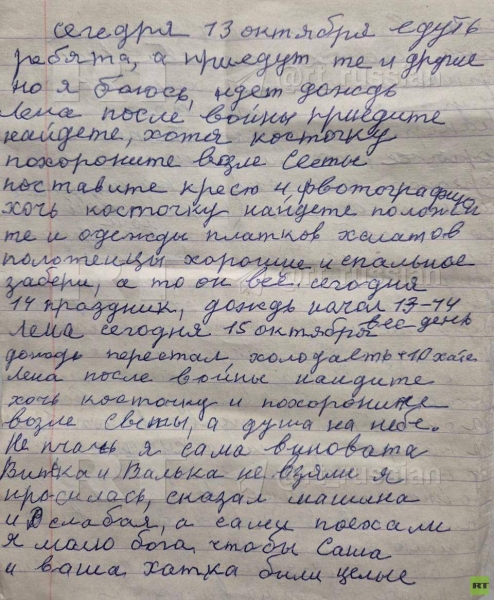 сегедря 13 октября едуть
ребята, а приедут те и другие
но я боюсь, идет дождь
Лена после войны приедите
найдете, хотя косточку
похороните возле Светы
поставите крест и фвотографию
хоч косточку найдете положи
те и одежды платков халатов
полотенцы хорошие и спальное
забери, а то он всё сегодня
14 праздник, дождь начал 13-14
весь день
Лена сегодня 15 октября
дождь перестал холодаеть +10 хате
Лена после войны найдите
хоч косточку и похороните
возле Светы, а душа на небе.
Не плачь я сама виновата
Витька и Валька не взяли я
просилась, сказал машина
и слабая, а сами поехали
я малю бога чтобы Саша
и ваша хатка били целые
@rt_russian
RT